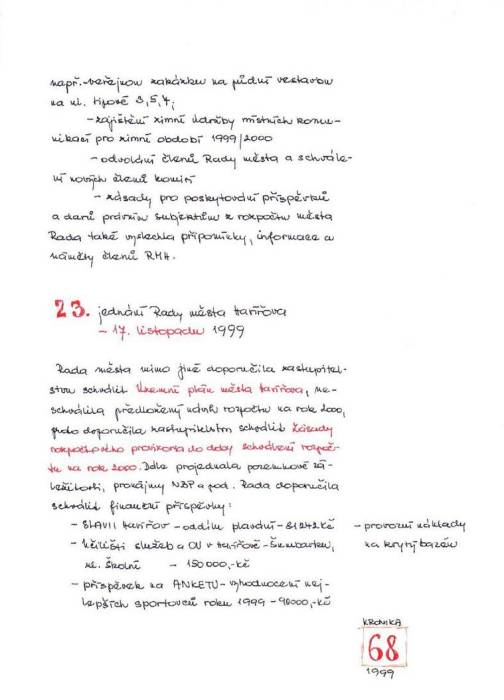 např. veřejnou zakázku na půdní vestavbu
na ul. Lipové 3,5,7;
- zajištění zimní údržby místních komu-
nikací pro zimní období 1999/2000
- odvolání členů Rady města a schvále-
ní nových členů komisí
- zásady pro poskytování příspěvků
a darů právním subjektům z rozpočtu města
Rada také vyslechla připomínky, informace a
náměty členů RMH.
23. jednání Rady města Havířova
- 17. listopadu 1999
Rada města mimo jiné doporučila zastupitel-
stvu schválit Územní plán města Havířova, ne-
schválila předložený návrh rozpočtu na rok 2000,
proto doporučila zastupitelstvu schválit Zásady
rozpočtového provizoria do doby schválení rozpoč-
tu na rok 2000. Dále projednala pozemkové zá-
ležitosti, pronájmy NBP a pod. Rada doporučila
schválit finanční příspěvky:
- SLAVII Havířov - oddílu plavání - Kč - provozní náklady
na krytý bazén
- Učilišti služeb a OU v Havířově - Šumbarku,
ul. Školní - 150000,-Kč
- příspěvek na ANKETU - vyhodnocení nej-
lepších sportovců roku 1999 - 90000,-Kč
KRONIKA
68
1999